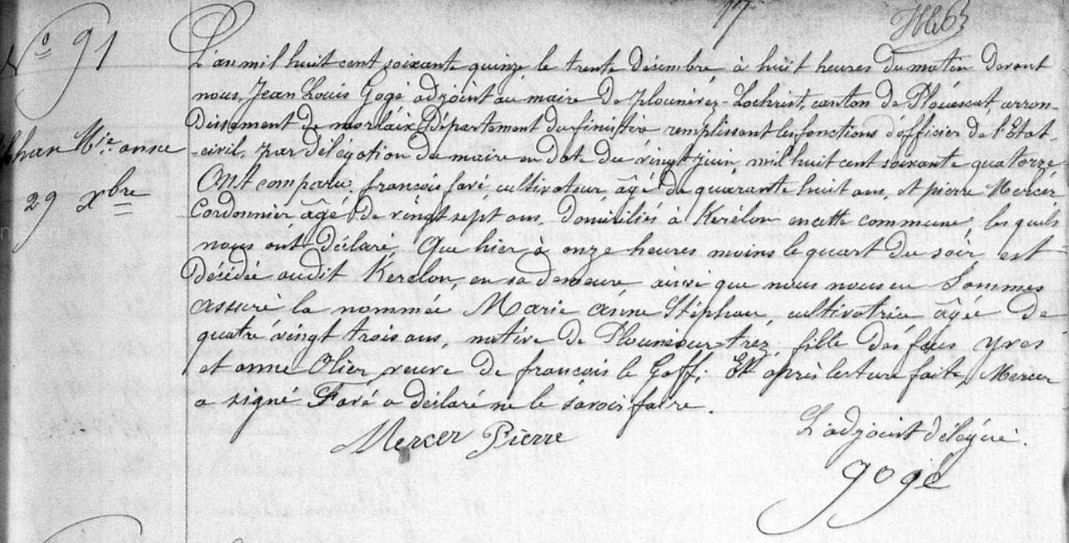 17
N° 91
L'an mil huit cent soixante quinze le trente désembre à huit heures du matin devant
nous, Jean Louis Gogé adjoint au maire de plounévez-Lochrist, canton de Plouescat arron-
Dissement de morlaix Département du finistère remplissant les fonctions d'officier de l'Etat-
-civil, par délégation du maire en date du vingt juin, mil huit cent soixante quatorze
Ont comparu, francois favé cultivateur âgé de quarante huit ans, et pierre Mercer
Cordonnier âgé de vingt sept ans, domiciliés à Kerélon en cette commune, lesquels
nous ont déclaré, Que hier à onze heures moins le quart du soir est
Décédée au dit Kerelon, en sa demeure ainsi que nous nous en Sommes
assuré la nommée Marie anne Stéphan, cultivatrice âgée de
quatre vingt trois ans, native de Plounéour-trez, fille des feus yves
et anne Olier, veuve de francois le Goff; Et après lecture faite, Mercer
a signé Favé a déclaré ne le savoir faire.
Stéphan Mie anne
29 Xbre
Mercer Pierre
L'adjoint délégué.
gogé